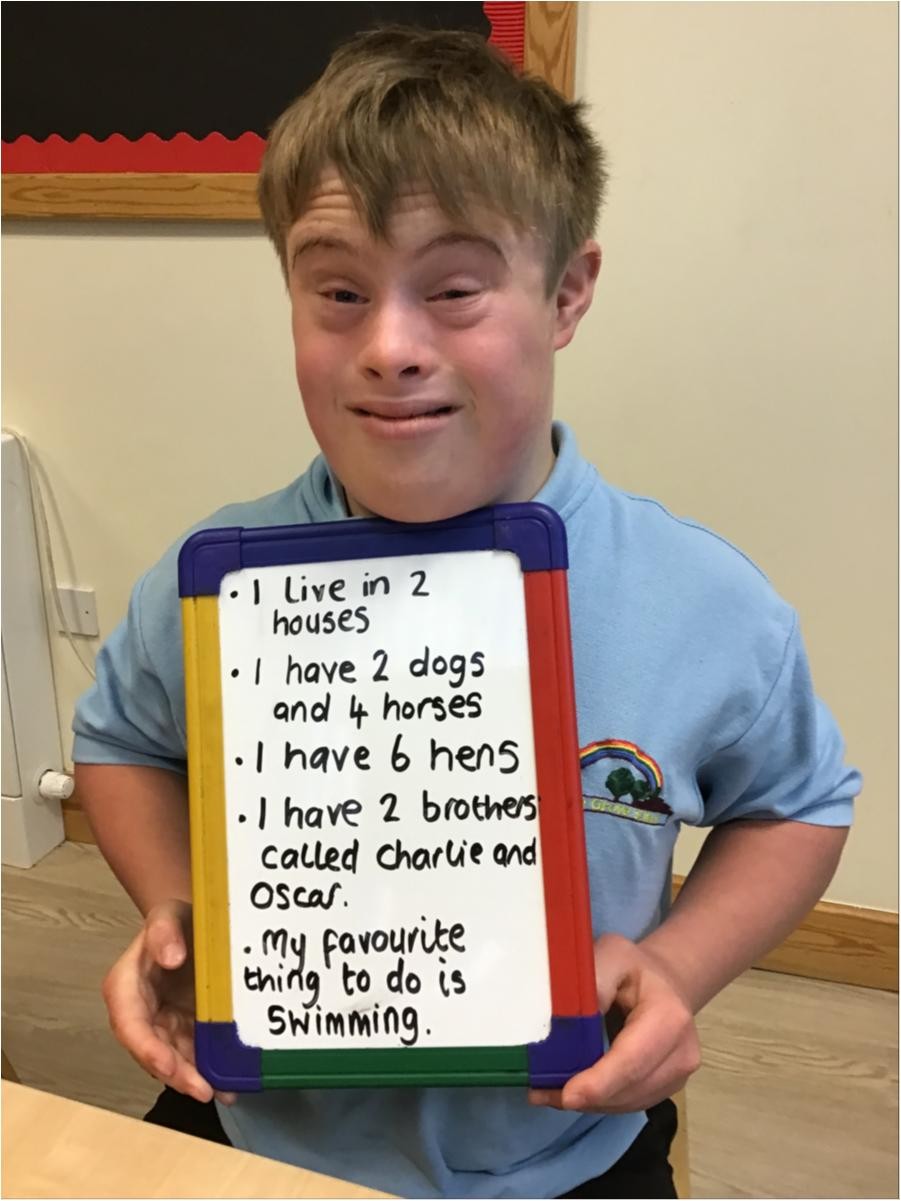 • I Live in 2
houses
• I have 2 dogs
and 4 horses
• I have 6 hens
• I have 2 brothers
called Charlie and
Oscar.
• My favourite
thing to do is
Swimming.